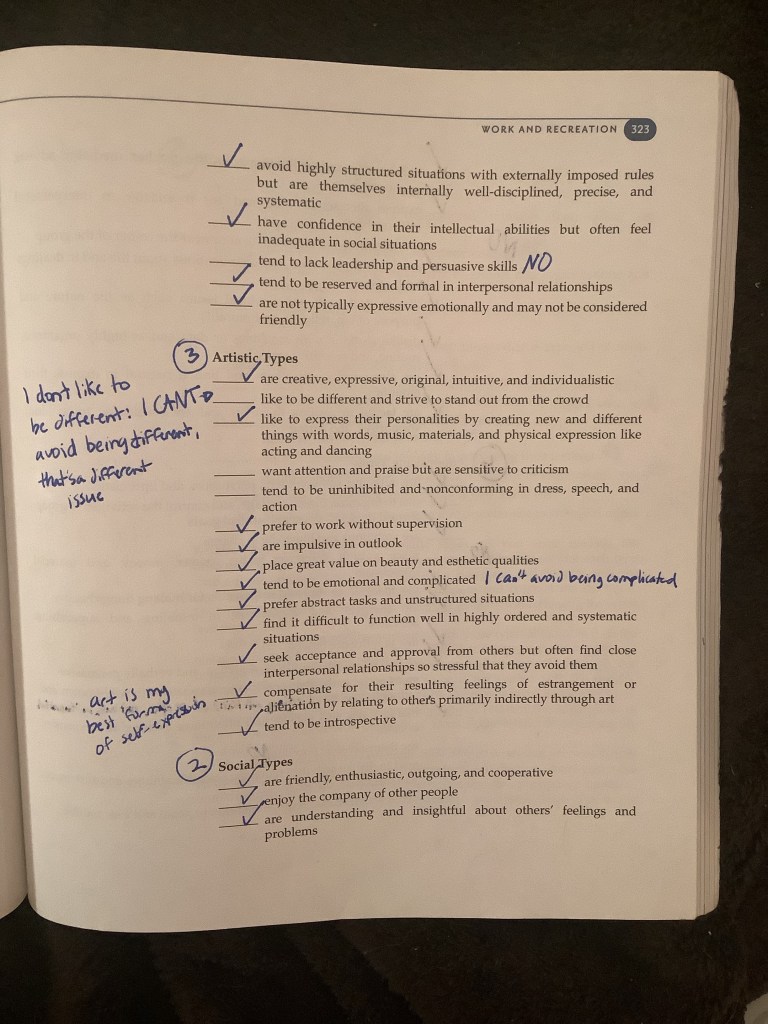 WORK AND RECREATION 323
✓ avoid highly structured situations with externally imposed rules
but are themselves internally well-disciplined, precise, and
systematic
✓ have confidence in their intellectual abilities but often feel
inadequate in social situations
tend to lack leadership and persuasive skills NO
✓ tend to be reserved and formal in interpersonal relationships
✓ are not typically expressive emotionally and may not be considered
friendly
3 Artistic Types
✓ are creative, expressive, original, intuitive, and individualistic
I don't like to
be different: I CANT
avoid being different,
that's a different
issue
like to be different and strive to stand out from the crowd
✓ like to express their personalities by creating new and different
things with words, music, materials, and physical expression like
acting and dancing
want attention and praise but are sensitive to criticism
tend to be uninhibited and nonconforming in dress, speech, and
action
✓ prefer to work without supervision
✓ are impulsive in outlook
✓ place great value on beauty and esthetic qualities
✓ tend to be emotional and complicated I can't avoid being complicated
✓ prefer abstract tasks and unstructured situations
✓ find it difficult to function well in highly ordered and systematic
situations
✓ seek acceptance and approval from others but often find close
interpersonal relationships so stressful that they avoid them
✓ compensate for their resulting feelings of estrangement or
alienation by relating to others primarily indirectly through art
art is my
best form
of self-expression
✓ tend to be introspective
2 Social Types
✓ are friendly, enthusiastic, outgoing, and cooperative
✓ enjoy the company of other people
✓ are understanding and insightful about others' feelings and
problems